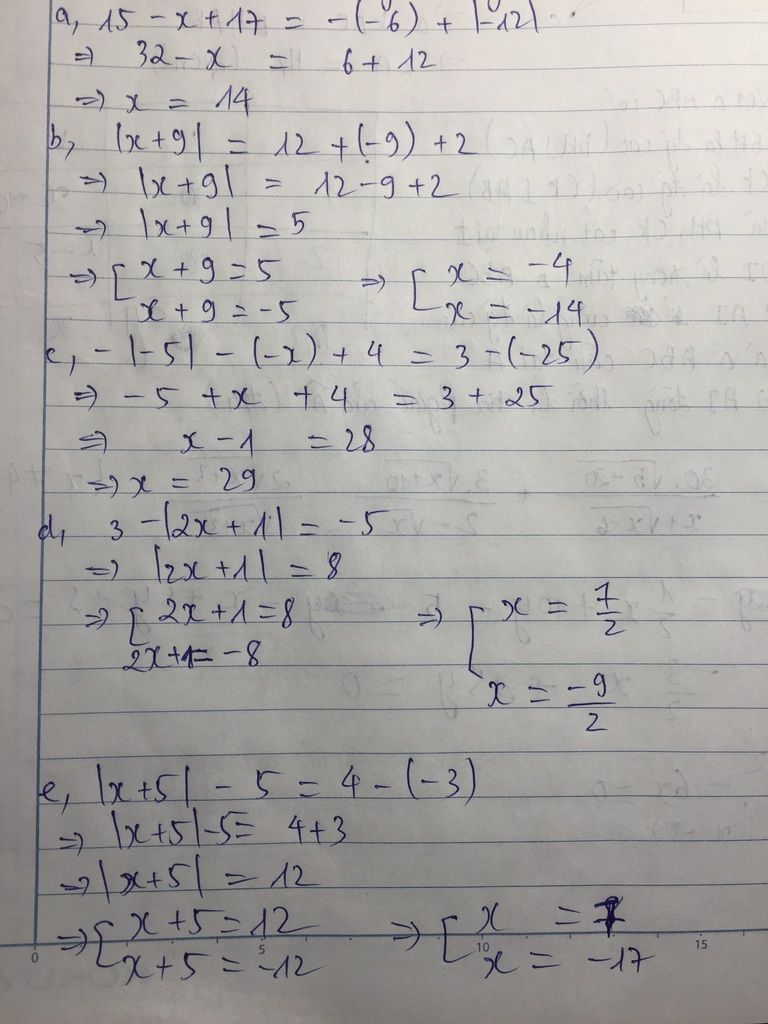 a, 15 - x + 17 = -(-6) + |-12|
=> 32 - x = 6 + 12
=> x = 14
b, |x+9| = 12 + (-9) + 2
=> |x+9| = 12 - 9 + 2
=> |x+9| = 5
=> [ x + 9 = 5 => [ x = -4
x + 9 = -5 x = -14
c, - |-5| - (-x) + 4 = 3 - (-25)
=> -5 + x + 4 = 3 + 25
=> x - 1 = 28
=> x = 29
d, 3 - |2x + 1| = -5
=> |2x + 1| = 8
=> [ 2x + 1 = 8 => [ x = 7/2
2x+1 = -8
x = -9/2
e, |x+5| - 5 = 4 - (-3)
=> |x+5| - 5 = 4 + 3
=> |x+5| = 12
=> [ x + 5 = 12 => [ x = 7
x + 5 = -12 x = -17
0 5 10 15